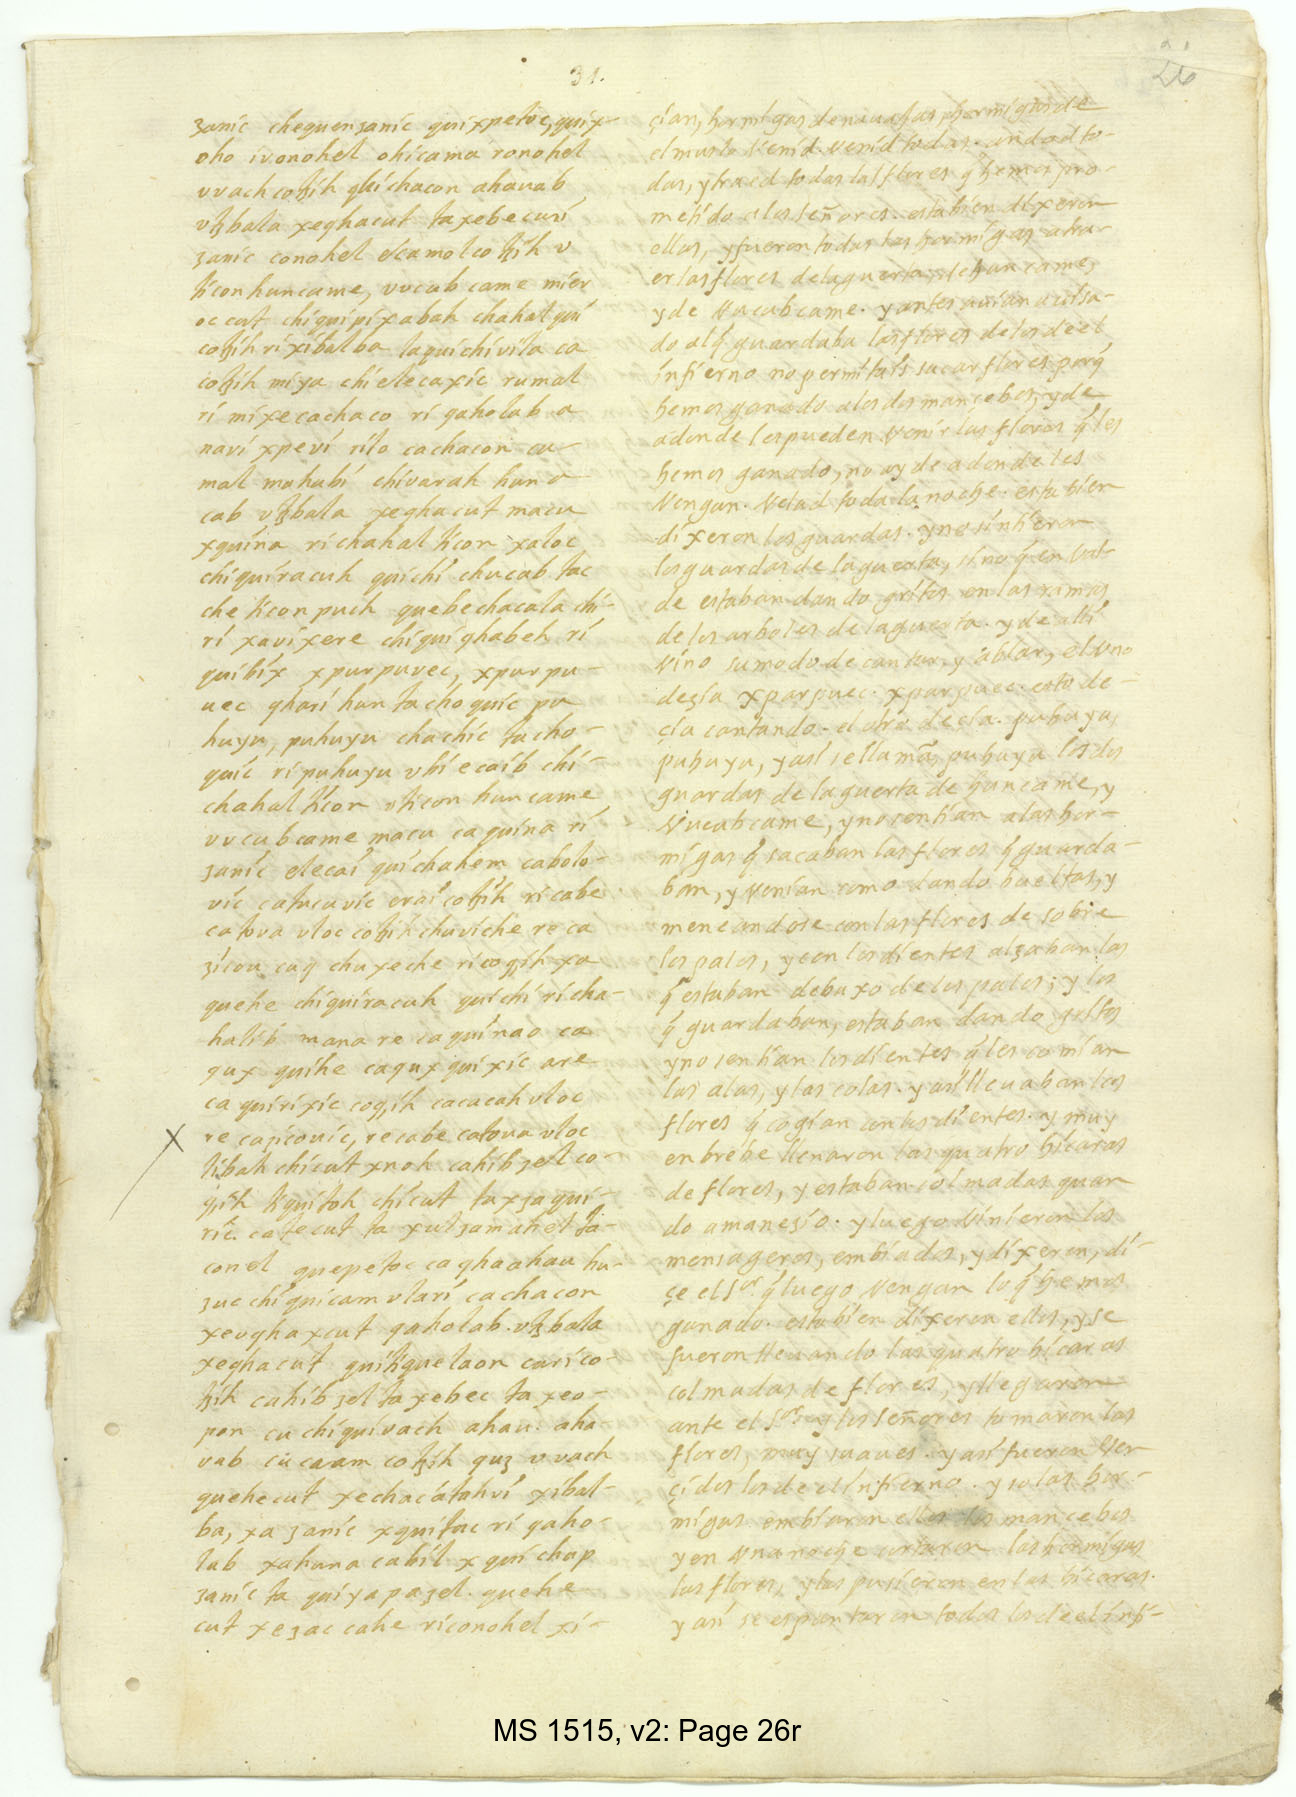 31.
26
zanic chequenzanic quixpetoc, quix-
oho ivonohel ohicama ronohel
vvach cotzih quichacon ahauab
vtzbala xeghacut taxebecuri
zanic conohel elcamolcotzih v
ticon huncame, vucub came mier
oc cut chiquipixabah chahalqui
cotzih ri xibalba laquichivila ca
cotzih miya chielecaxic rumal
ri mixecachaco ri qaholab a
navi xpevi rilo cachacon cu-
mal mahabi chivarah hun a
cab vtzbala xeghacut macu
xquina ri chahal ticon xaloc
chiquiracuh quichi chucab tac
che ticon puch quebechacala chi-
ri xavixere chiquighabeh ri
quibix xpurpuvec, xpurpu-
uec ghari hun tachoquic pu
huyu, puhuyu chachic tacho-
quic ri puhuyu vbi ecaib chi-
chahal ticon vticon huncame
vvcubcame macu caquina ri
zanic elecai quichahem cabolo-
vic catucuvic erai cotzih ricabe
catova vloc cotzih chuviche reca
zicou caq chuxeche ricoqih xa
quehe chiquiracuh quichi richa-
halib mana re caquinao ca
qux quihe caqux quixic are
ca quirixic coqih cacacah vloc
re cazicouic, re cabe catova vloc
libah chicut xnoh cahib zel co-
qih tiquitoh chicut taxzaqui-
ric. catecut ta xul zamahel ta-
conel quepetoc caghaahau hu-
zuc chiquicam vlari cachacon
xevghaxcut qaholab. vtzbala
xeghacut quitiquelaon curico-
tzih cahib zel taxebec taxeo-
pon cu chiquivach ahau. aha
vab cu caam cotzih quz vvach
quehecut xechacatahvi xibal-
ba, xa zanic xquitac ri qaho-
lab xahuna cabil xquichap
zanic ta quiya pazel. quehe
cut xezac cahe riconohel xi-
çian, hormigas denauahas y hormigas de
el muslo venid. venid todas. andad to-
das, y traed todas las flores q̃ hemos pro-
metido a los señores. esta bien dixeron
ellas, y fueron todas las hormigas atra-
er las flores dela guerta de huncame,
y de vucubcame. y antes auian auisa-
do al q̃ guardaba las flores de los de el
infierno no permitais sacar flores porq̃
hemos ganado a los dos mancebos, y de
adonde les pueden venir las flores q̃ les
hemos ganado, no ay de adonde les
vengan. velad toda la noche. esta bien
dixeron los guardas. y no sintieron
los guardas de la guerta, sino q̃ en val-
de estaban dando gritos en las ramas
de los arboles de la guerta. y de alli
vino su modo de cantar, y ablar, el vno
desia xparpuec. xparpuec. esto de-
çia cantando. el otro decia. puhuyu,
puhuyu, y asi se llamã puhuyu los dos
guardas de la guerta de huncame, y
vucubcame, y no sentian a las hor-
migas q̃ sacaban las flores q̃ guarda-
ban, y venian como dando bueltas, y
meneandose con las flores de sobre
los palos, y con los dientes alzaban las
q̃ estaban debaxo de los palos; y los
q̃ guardaban, estaban dando gritos
y no sentian los dientes q̃ les comian
las alas, y las colas. y asi lleuaban las
flores q̃ cogian con los dientes. y muy
en brebe llenaron las quatro hicaras
de flores, y estaban colmadas quan
do amanesio. y luego vinieron los
mensageros, embiados, y dixeron, di-
çe el Sor. q̃ luego vengan lo q̃ hemos
ganado. esta bien dixeron ellos, y se
fueron lleuando las quatro hicaras
colmadas de flores, y llegaron
ante el Sor. y los señores tomaron las
flores, muy suaues. y asi fueron ven
çidos los de el infierno. y solas hor-
migas embiaron ellos los mancebos
y en vna noche cortaron las hormigas
las flores, y las pusieron en las hicaras.
y asi se espantaron todos los de el infi-
MS 1515, v2: Page 26r